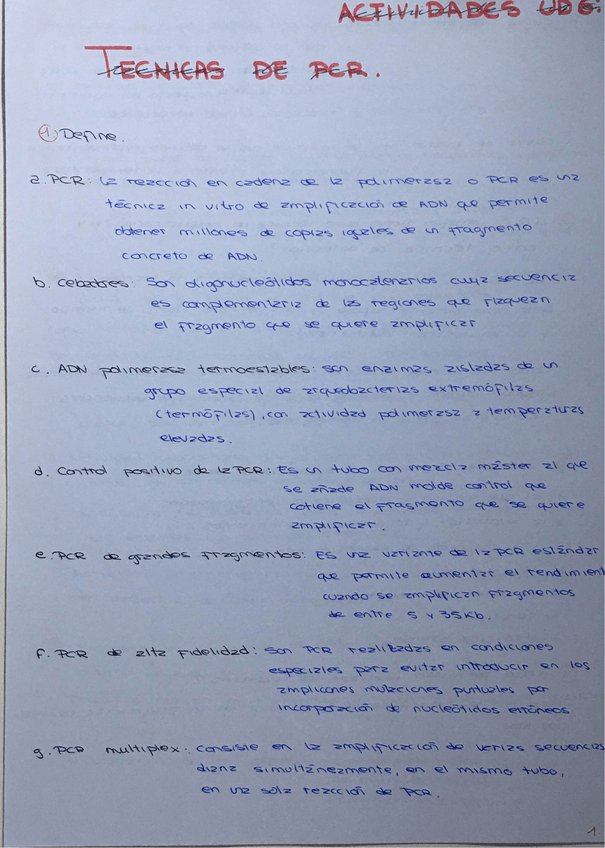 ACTIVIDADES UD6:
TECNICAS DE PCR.
1 Define.
a. PCR: La reacción en cadena de la polimerasa o PCR es una
técnica in vitro de amplificación de ADN que permite
obtener millones de copias iguales de un fragmento
concreto de ADN.
b. Cebadores: Son oligonucleótidos monocatenarios cuya secuencia
es complementaria de las regiones que flanquean
el fragmento que se quiere amplificar
c. ADN polimerasa termoestables: son enzimas aisladas de un
grupo especial de arqueobacterias extremófilas
(termófilas), con actividad polimerasa a temperaturas
elevadas.
d. Control positivo de la PCR: Es un tubo con mezcla máster al que
se añade ADN molde control que
cotiene el fragmento que se quiere
amplificar.
e. PCR de grandes fragmentos: Es una variante de la PCR estándar
que permite aumentar el rendimient
cuando se amplifican fragmentos
de entre 5 y 35Kb.
f. PCR de alta fidelidad: Son PCR realizadas en condiciones
especiales para evitar introducir en los
amplicones mutaciones puntuales por
incorporación de nucleótidos erróneos.
g. PCR multiplex: Consiste en la amplificación de varias secuencias
diana simultáneamente, en el mismo tubo,
en una sola reacción de PCR.
1